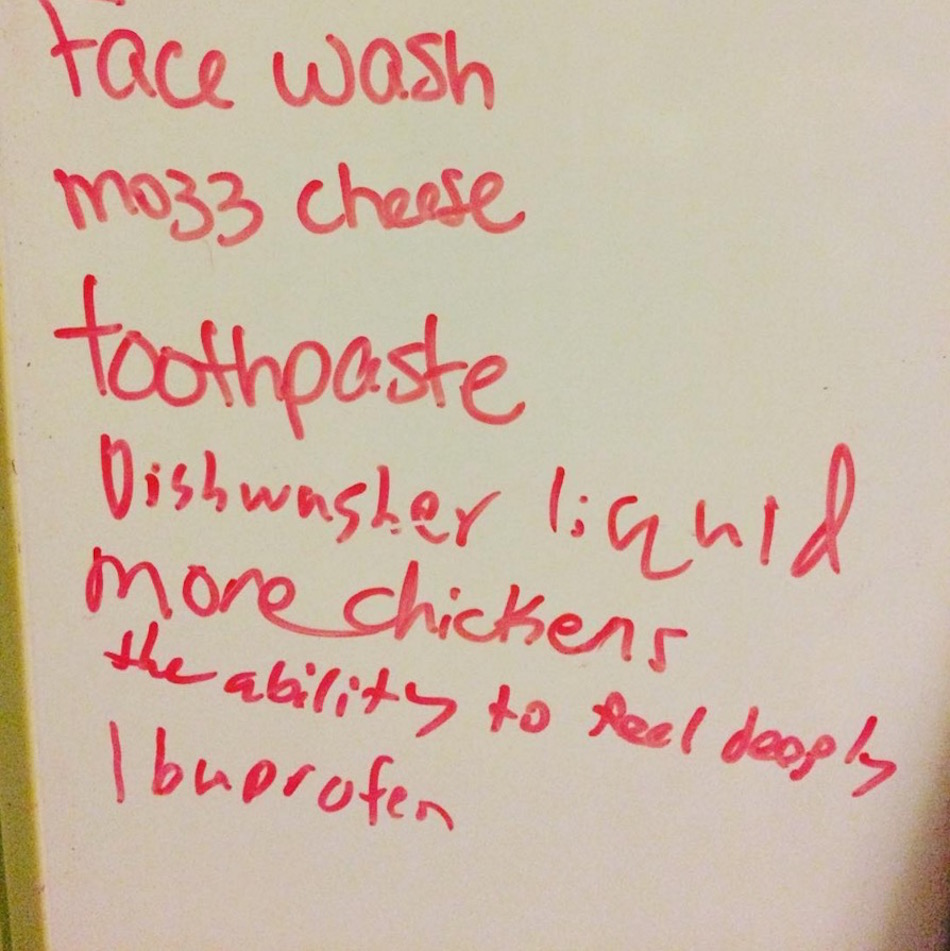 Face wash
mozz cheese
toothpaste
Dishwasher liquid
more chickens
the ability to feel deeply
Ibuprofen